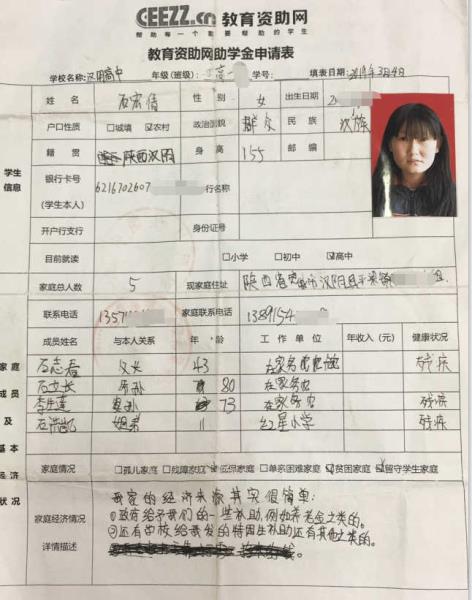 GEEZZ.cn 教育资助网
帮助每一个需要帮助的学生
教育资助网助学金申请表
学校名称:汉阴高中 年级(班级): 高一 学号: 填表日期:2019年3月4日
姓名 石宏倩 性别 女 出生日期
户口性质 □城镇 ☑农村 政治面貌 群众 民族 汉族
籍贯 陕西汉阴 身高 155 邮编
学生信息
银行卡号(学生本人) 6216702607 行名称
开户行支行 身份证号
目前就读 □小学 □初中 ☑高中
家庭总人数 5 现家庭住址 陕西省安康市汉阴县平梁镇 组
联系电话 家庭联系电话 1389154
家庭成员及基本经济状况
成员姓名 与本人关系 年龄 工作单位 年收入(元) 健康状况
父长 43 在家务 残疾
80 在家务农
73 在家务农 残疾
姐弟 11 红星小学 残疾
家庭情况 □孤儿家庭 □残障家庭 ☑低保家庭 □单亲困难家庭 ☑贫困家庭 ☑留守学生家庭
家庭经济情况详情描述
我家的经济来源其实很简单:
①政府给予我们的一些补助,例如养老金之类的。
②还有学校给我发的特困生补助还有其他之类的。